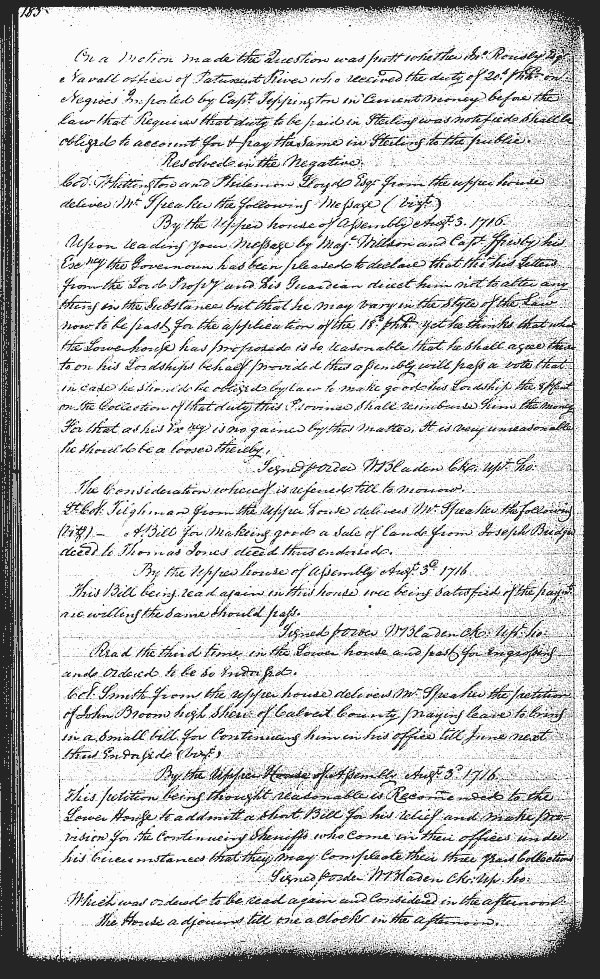 183
On a motion made the Question was putt whether Mr. Rousby Esqr
Navall officer of Patuxent River who received the duty of 20s phd on
Negroes Imported by Capt. Toppington in Current money before the
law that Requires that duty to be paid in Sterling was notifyed shall be
obliged to account for & pay the same in Sterling to the public.
Resolved in the Negative.
Col. Whittington and Philemon Lloyd Esqr from the upper house
deliver Mr. Speaker the following Message (vizt)
By the Upper house of Assembly Augt. 3. 1716.
Upon reading your Message by Majr. Willson and Capt. his
Exency the Governour has been pleased to declare that tho his Letters
from the Lord Propry and his Guardian direct him not to alter any
thing in the Substance but that he may vary in the Style of the Law
now to be past for the application of the 18d phd. yet he thinks that what
the Lower house has proposed is so reasonable that he shall agree there
to on his Lordships behalf provided this assembly will pass a vote that
in case he should be obliged by law to make good his Lordship the effect
on the Collection of that duty this Province shall reimburse him the money
For that as his Exncy is no gainer by this matter, It is very unreasonable
he should be a looser thereby.
Signed p order W Bladen Ck. upr. ho:
The Consideration whereof is referred till to morrow.
Lt. Col. Tilghman from the upper house delivers Mr. Speaker the following
(vizt) — A Bill for Makeing good a Sale of Land from Joseph
deced to Thomas Jones deced thus endorsed.
By the Upper house of Assembly Augt. 3d 1716
This Bill being read again in this house wee being Satisfied of the paymt.
are willing the same should pass.
Signed p order W Bladen Ck. Upr. ho:
Read the third time in the Lower house and past for engrossing
and ordered to be so Endorsed.
Col. Smith from the upper house delivers Mr. Speaker the petition
of John Broom high Sherr. of Calvert County praying leave to bring
in a Small bill for Continueing him in his office till June next
thus Endorsed (vizt.)
By the Upper House of Assembly Augt. 3d 1716.
This petition being thought reasonable is Recomended to the
Lower House to addmitt a short Bill for his relief and make pro
vision for the Continueing Sheriffs who come in their offices under
his Circumstances that they may Compleate their three years Collection
Signed p order W Bladen Ck. Up. ho:
Which was ordered to be read again and Considered in the afternoon
The House adjourns till one a Clock in the afternoon.